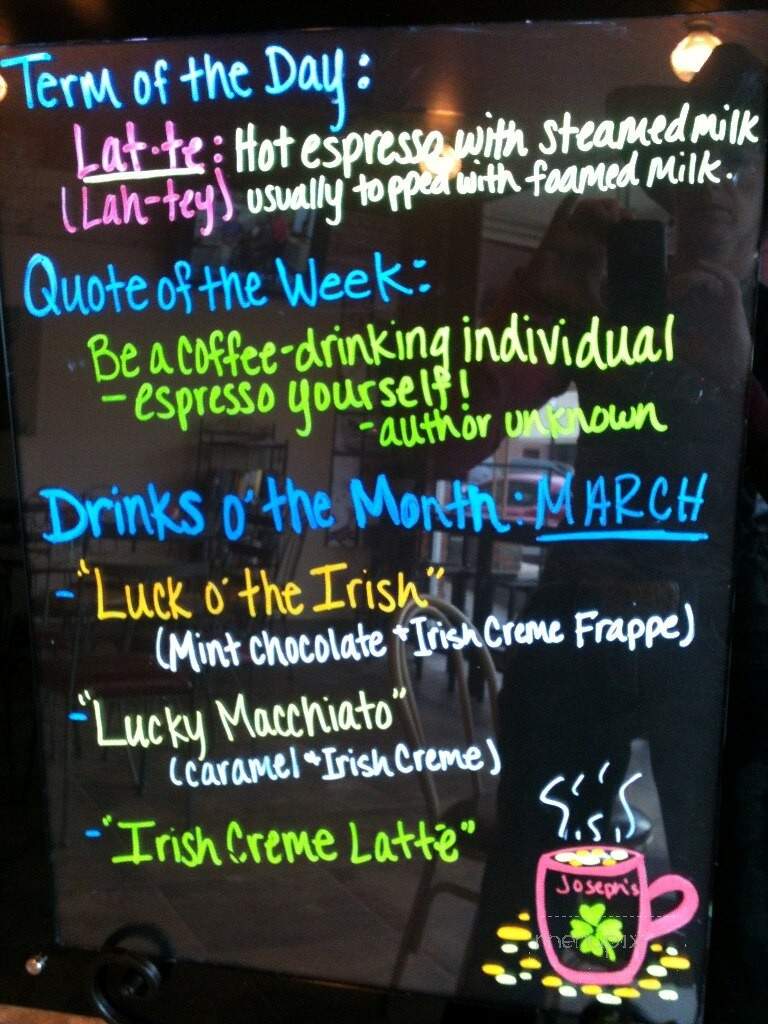 Term of the Day:
Lat·te: Hot espresso with steamed milk
(Lah-tey) usually topped with foamed milk.
Quote of the Week:
Be a coffee-drinking individual
- espresso yourself!
- author unknown
Drinks o' the Month: MARCH
- "Luck o' the Irish"
(Mint chocolate + Irish Creme Frappe)
- "Lucky Macchiato"
(caramel + Irish Creme)
- "Irish Creme Latte"
Joseph's
menupix